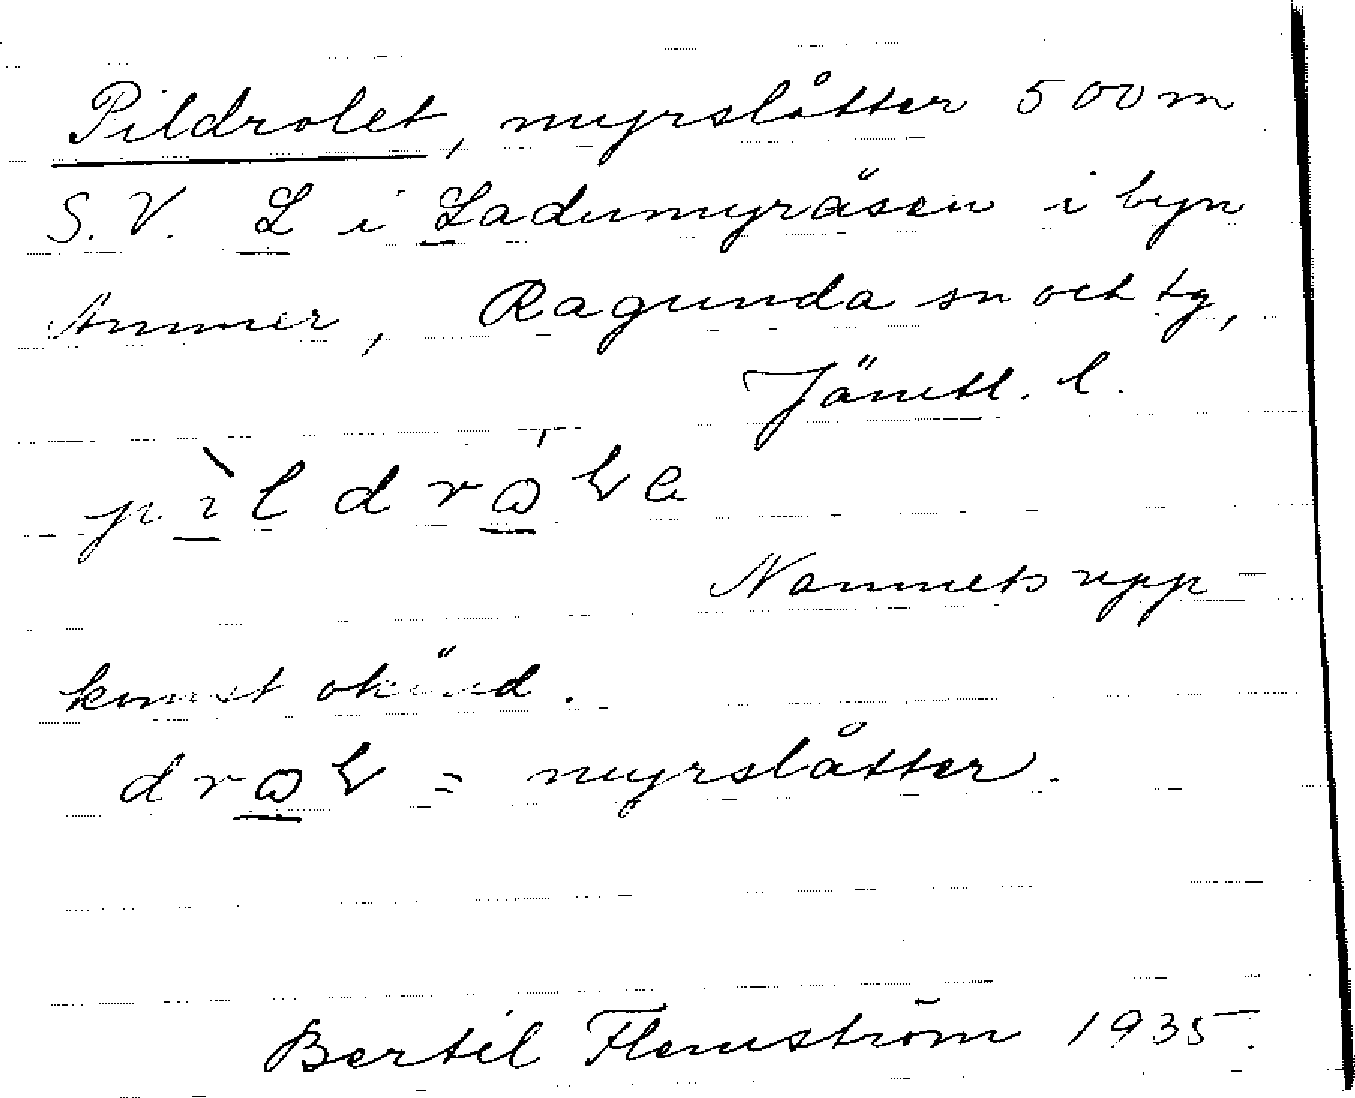 Pildrolet, myrslåtter 500 m
S.V. L i Ladumyråsen i byn
Ammer, Ragunda sn och tg,
Jämtl. l.
Namnets upp-
komst okänd.
= myrslåtter.
Bertil Flemström 1935.